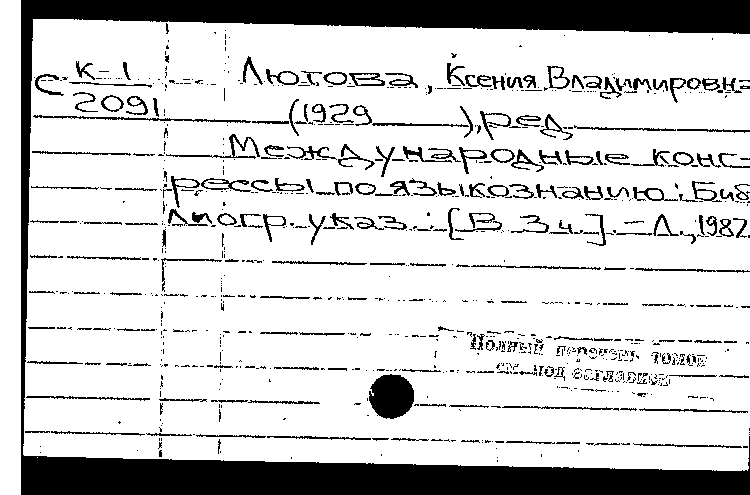 С К-1
2091
Лютова, Ксения Владимировна
(1929 ), ред.
Международные конг-
рессы по языкознанию: Биб
лиогр. указ.: [В 3 ч.]. – Л., 1987
Полный перечень томов
см. под заглавием